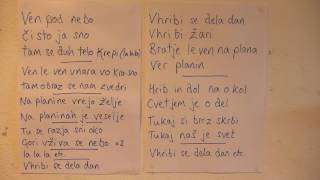 Ven pod nebo
Či sto ja sno
tam se duh telo krepi (la la la)
Ven le ven vnaravo krasno
tam obraz se nam zvedri
Na planine vrejo želje
Na planinah je veselje
Tu se razja sni oko
Gori vživa se nebo x2
la la la etc.
Vhribi se dela dan
Vhribi se dela dan
Vhribi žari
Bratje le ven na plano
Ver planin
Hrib in dol na okol
Cvetjem je o del
Tukaj si brez skrbi
Tukaj naš je svet
Vhribi se dela dan etc.